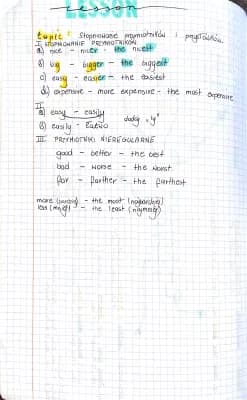 LESSON
Lesson
topic: Stopniowanie przymiotników i przysłówków.
I STOPNIOWANIE PRZYMIOTNIKÓW
a) nice - nicer - the nicest
b) big - bigger - the biggest
c) easy - easier - the easiest
d) expensive - more expensive - the most expensive
II
a) easy - easily dodaj "y"
b) easily - łatwo
III PRZYMIOTNIKI NIEREGULARNE
good - better - the best
bad - worse - the worst
far - farther - the furthest
more (bardziej) - the most (najbardziej)
less (mniej) - the least (najmniej)